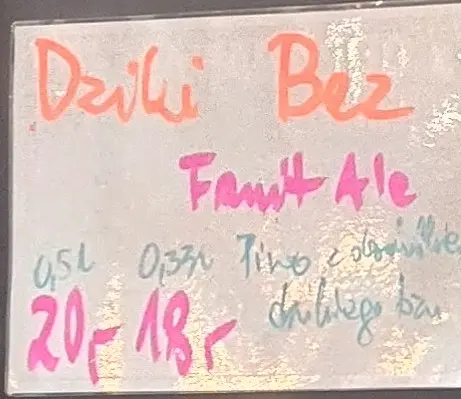 Dziki Bez
Fruit Ale
0,5l 0,33l Piwo z dodatkiem
dzikiego bzu
20,- 18,-